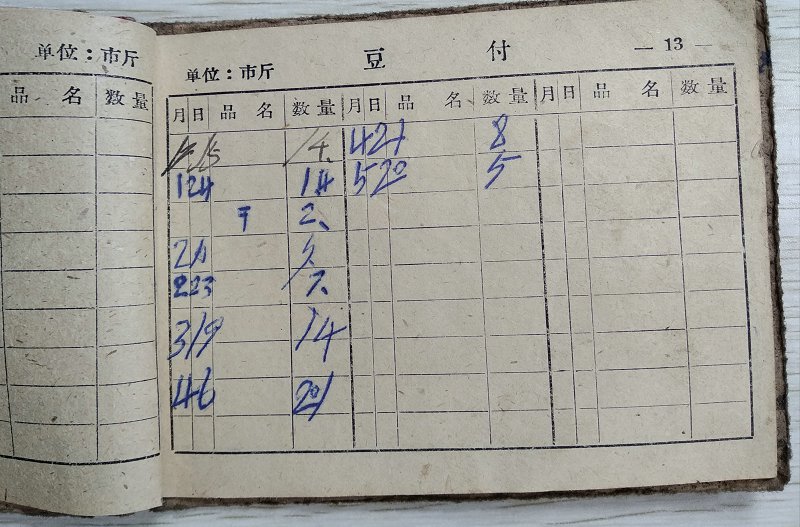 单位：市斤
品 名 数量
单位：市斤 豆 付 — 13 —
月 日 品 名 数量 月 日 品 名 数量 月 日 品 名 数量
14. 4 21 8
1 24 14 5 20 5
2、
2 23 7、
3 19 14
4 6